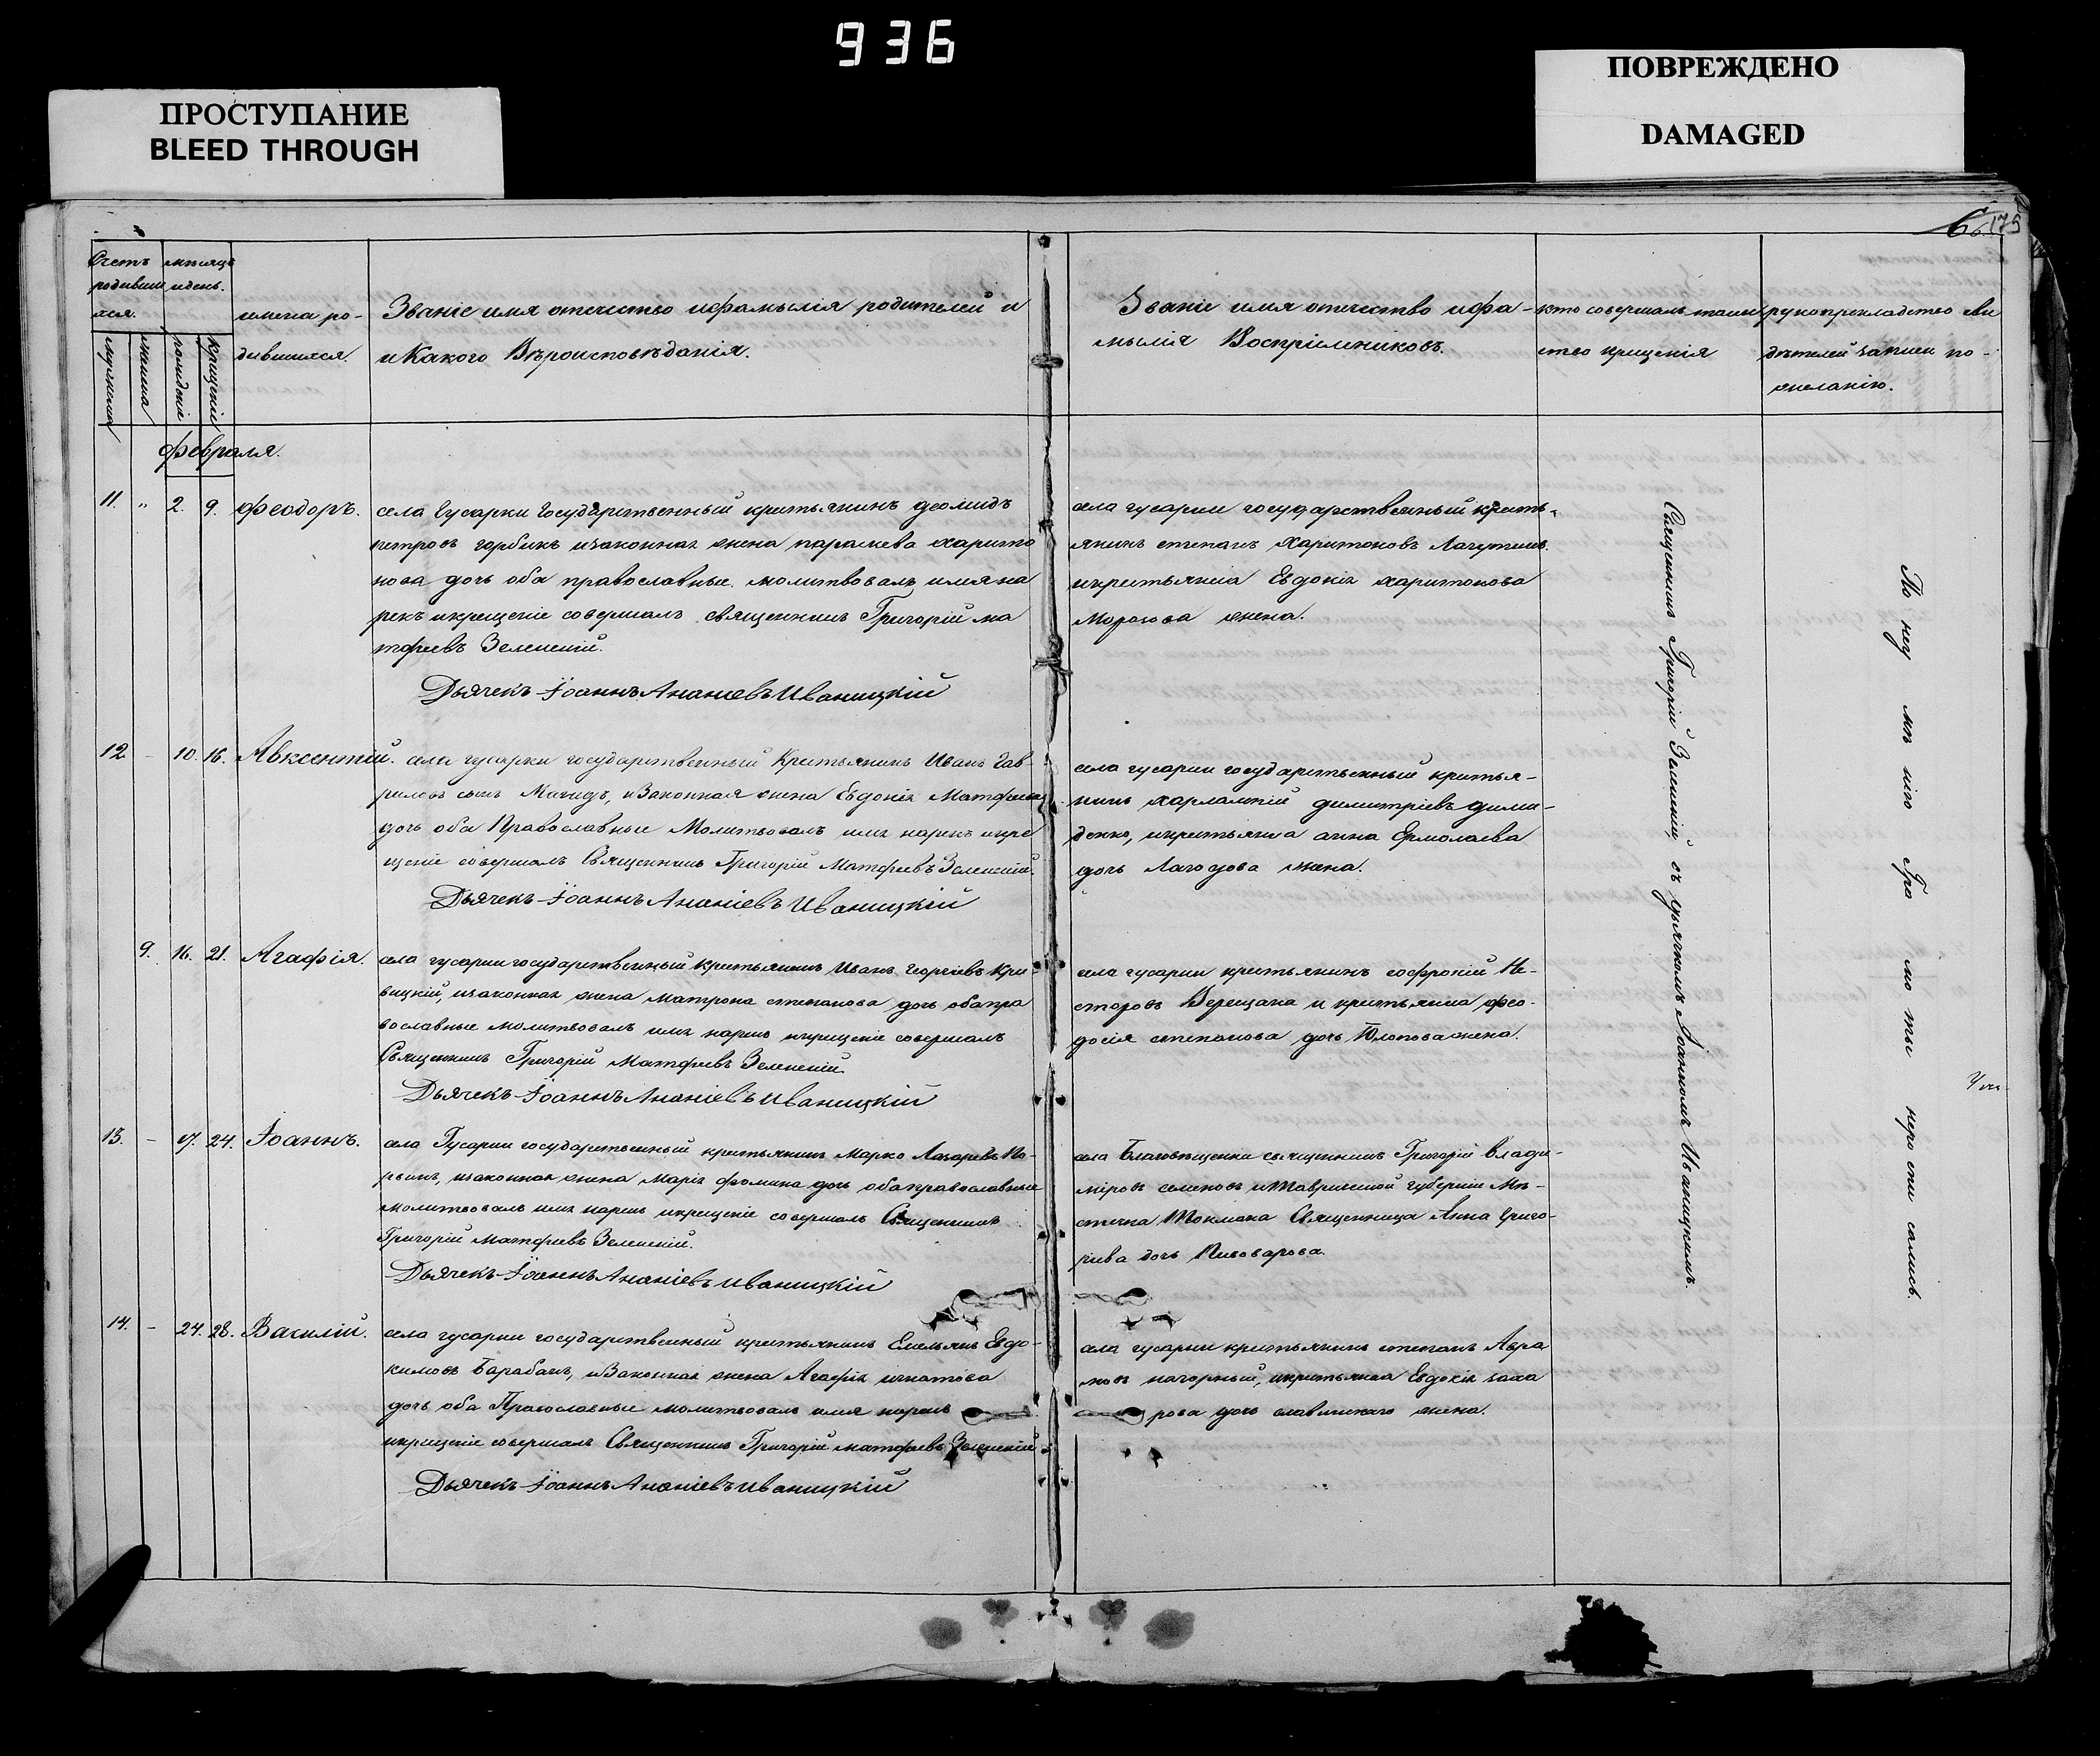 936
ПРОСТУПАНИЕ
BLEED THROUGH
ПОВРЕЖДЕНО
DAMAGED
175
Счетъ
родивши
хся.
мѣсяцъ
и день.
рожденіе
крещеніе
имена ро-
дившихся.
Званіе имя отечество и фамылія родителей и
и Какого Вѣроисповѣданія.
Званіе имя отечество и фа-
мылія Воспріемниковъ.
кто совершалъ таин
ство крещенія
рукоприкладство сви
дѣтелей записи по-
желанію.
февраля.
11. „ 2. 9. Феодоръ.
села Гусарки государственный крестьянинъ деомидъ
петровъ горбикъ и законная жена параскева харито
нова дочь оба православные. молитвовалъ имя на
рекъ и крещеніе совершалъ священникъ Григорій ма
тфеевъ Зеленскій.
Дьячекъ Іоаннъ Ананіевъ Иваницкій
села гусарки государственный кресть-
янинъ степанъ Харитоновъ
и крестьянка Евдокія харитонова
Морозова жена.
12 - 10. 16. Авксентій.
села гусарки государственный Крестьянинъ Иванъ Гав
риловъ сынъ и Законная жена Евдокія Матфеева
дочь оба Православные Молитвовалъ имя нарекъ и кре
щеніе совершалъ Священникъ Григорій Матфеевъ Зеленскій.
Дьячекъ Іоаннъ Ананіевъ Иваницкій
села гусарки государственный крестья-
нинъ харлампій димитріевъ дими-
денко, и крестьянка анна Ермолаева
дочь Лагодова жена.
9. 16. 21. Агафія.
села гусарки государственный крестьянинъ Иванъ Георгіевъ Кри
вицкій, и законная жена Матрона степанова дочь оба пра
вославные молитвовалъ имя нарекъ и крещеніе совершалъ
Священникъ Григорій Матфеевъ Зеленскій.
Дьячекъ Іоаннъ Ананіевъ Иваницкій
села гусарки крестьянинъ софроній Не-
сторовъ Верещака и крестьянка фео-
досія степанова дочь жена.
13. - 17. 24. Іоаннъ.
села Гусарки государственный крестьянинъ Марко Лазаревъ
и законная жена Марія фомина дочь оба православные
молитвовалъ имя нарекъ и крещеніе совершалъ Священникъ
Григорій Матфеевъ Зеленскій.
Дьячекъ Іоаннъ Ананіевъ Иваницкій
села Благовѣщенки священникъ Григорій влади-
міровъ и Таврической губерніи Мѣ-
стечка Токмака Священница Анна Григо-
рьева дочь Пивоварова.
14. - 24. 28. Василій.
села гусарки государственный крестьянинъ Емельянъ Евдо-
кимовъ Барабашъ, и Законная жена Агафія игнатова
дочь оба Православные молитвовалъ имя нарекъ
и крещеніе совершалъ Священникъ Григорій матфеевъ Зеленскій
Дьячекъ Іоаннъ Ананіевъ Иваницкій
села гусарки крестьянинъ степанъ Авра
мовъ нагорный, и крестьянка Евдокія заха
рова дочь славинскаго жена.
Священникъ Григорій Зеленскій съ дьячкомъ Іоанномъ Иваницкимъ.
По не у мѣ нію Гра мо ты не ро спи сались.